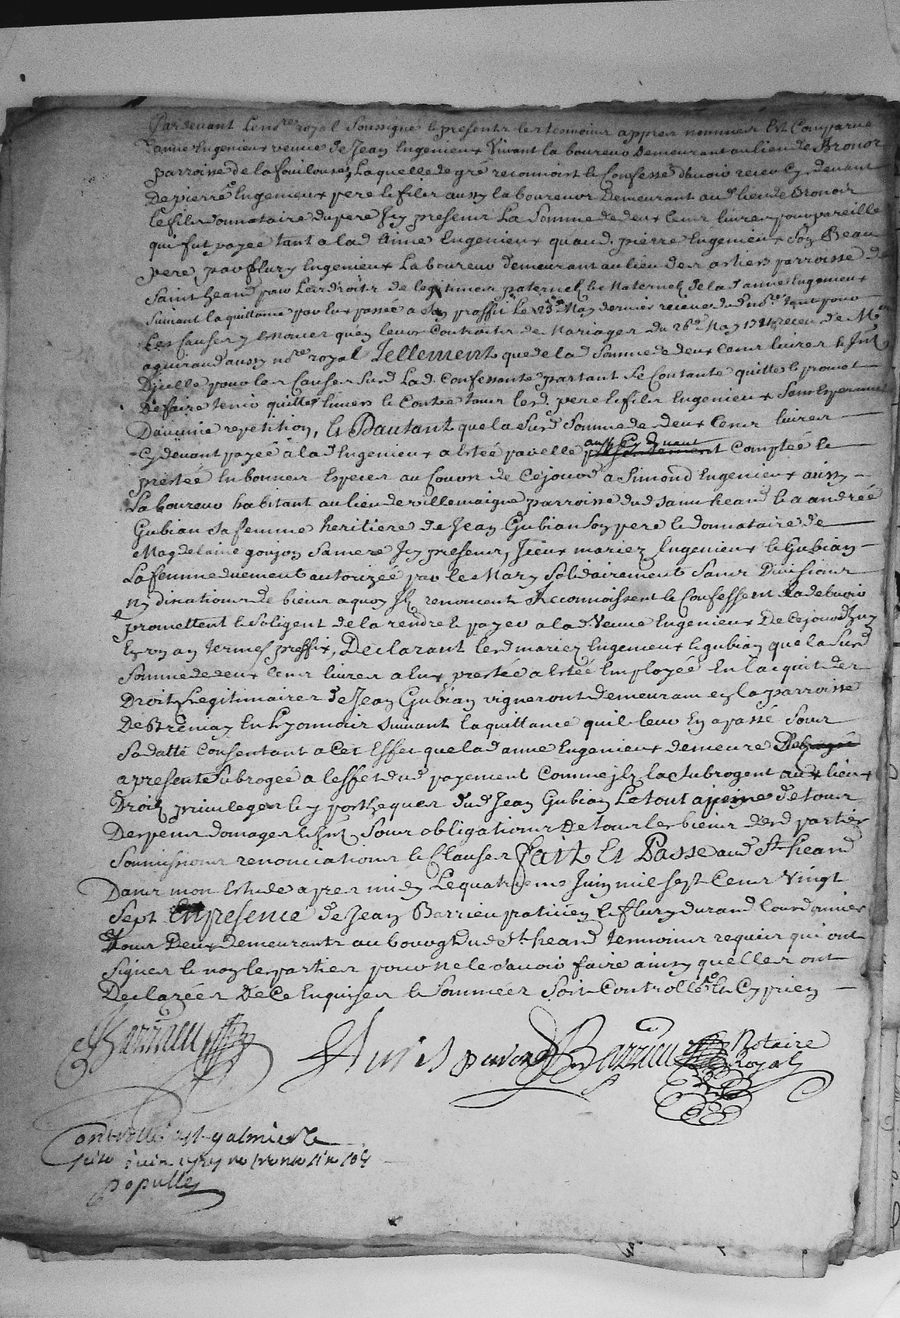 Pardevant Le no.re royal Soussigné & présents les temoins appres nommés Est Comparue
Anne Ingenieux veuve de Jean Ingenieux Vivant laboureur Demeurant au lieu de Bronoz
parroisse de la fouillouse, Laquelle de gré reconnoit & Confesse d'avoir receu Cydevant
De pierre Ingenieux pere & filz aussy laboureur Demeurant aud lieu de Bronoz
le filz donnataire du pere Icy present La Somme de deux Cens livres pour pareille
qui fut payée tant a lad Anne Ingenieux qu'aud pierre Ingenieux Son Beau
pere par fleury Ingenieux Laboureur demeurant au lieu des parroisse de
Saint heand pour Les droits de legitimes paternels & Maternels de la d anne Ingenieux
Suivant la quittance par luy passée a Son proffit Le 25e May dernier receue dud no.re tant pour
Les Causes y Enoncer qu'en leurs Contracts de Mariages du 26e May receu de Me
aguiraud aussy no.re royal Tellement que de lad Somme de deux Cens livres & Int
Dicelle pour les Causes Susd Lad Confessante partant Se Contante quitte & promet
De faire tenir quittes Envers & Contre tous lesd pere & filz Ingenieux Sans Esperance
D'aucune repetition, & D'autant que la Susd Somme de deux Cens livres
Cydevant payée a la d Ingenieux a Esté par elle aussy Cydevant Comptée &
prestée En bonnes Especes au Cours de Ce jour a Simond Ingenieux aussy
Laboureur habitant au lieu de villemaigne parroisse dud saint heand & a andrée
Gubian Sa femme heritiere de Jean Gubian Son pere & donnataire de
Magdelaine goujon Sa mere Icy presens, Iceux mariez Ingenieux & Gubian
La femme duement autorizée par le Mary Solidairement Sans Division
ny dication de biens a quoy Ils renoncent Reconnoissent & Confessent La debvoir
promettent & Soligent de la rendre & payer a la d Veuve Ingenieux De Ce jourd'huy
En un an terme preffix, Declarant Lesd mariez Ingenieux & gubian que la Susd
Somme de deux Cens livres a Eux prestée a Esté Employée En l'acquit des
Droits Legitimaires de Jean Gubian vigneron demeurant en la parroisse
De En Lyonnois Suivant la quittance qu'il leur En a passé Sous
Sa datte Consentant a Cet Effet que la d anne Ingenieux demeure
a presente Subrogée a l'effet dud payement Comme ils la Subrogent aux lieux
Droits privileges & yppotheques dud Jean Gubian Le tout a peine de tous
Despens domages & Int Sous obligations De tous les biens desd parties
Soumissions renonciations & Clauses fait Et Passé aud St heand
Dans mon Estude apres midy Le quatrieme Juin mil Sept Cens Vingt
Sept En presence de Jean Barrieu paticier & fleury durand Cordonnier
tous Deux demeurants au bourg dud St heand temoins requis qui ont
Signes & non les parties pour ne le Scavoir faire ainsy qu'elles ont
Declarées De Ce Enquises & Sommées Soit Controllé Le Cyprien
Barrieu
fleuris durand Barrieu Notaire
Royal
Controllé a St galmier le
juin 1727 reçu trente six sols
populle